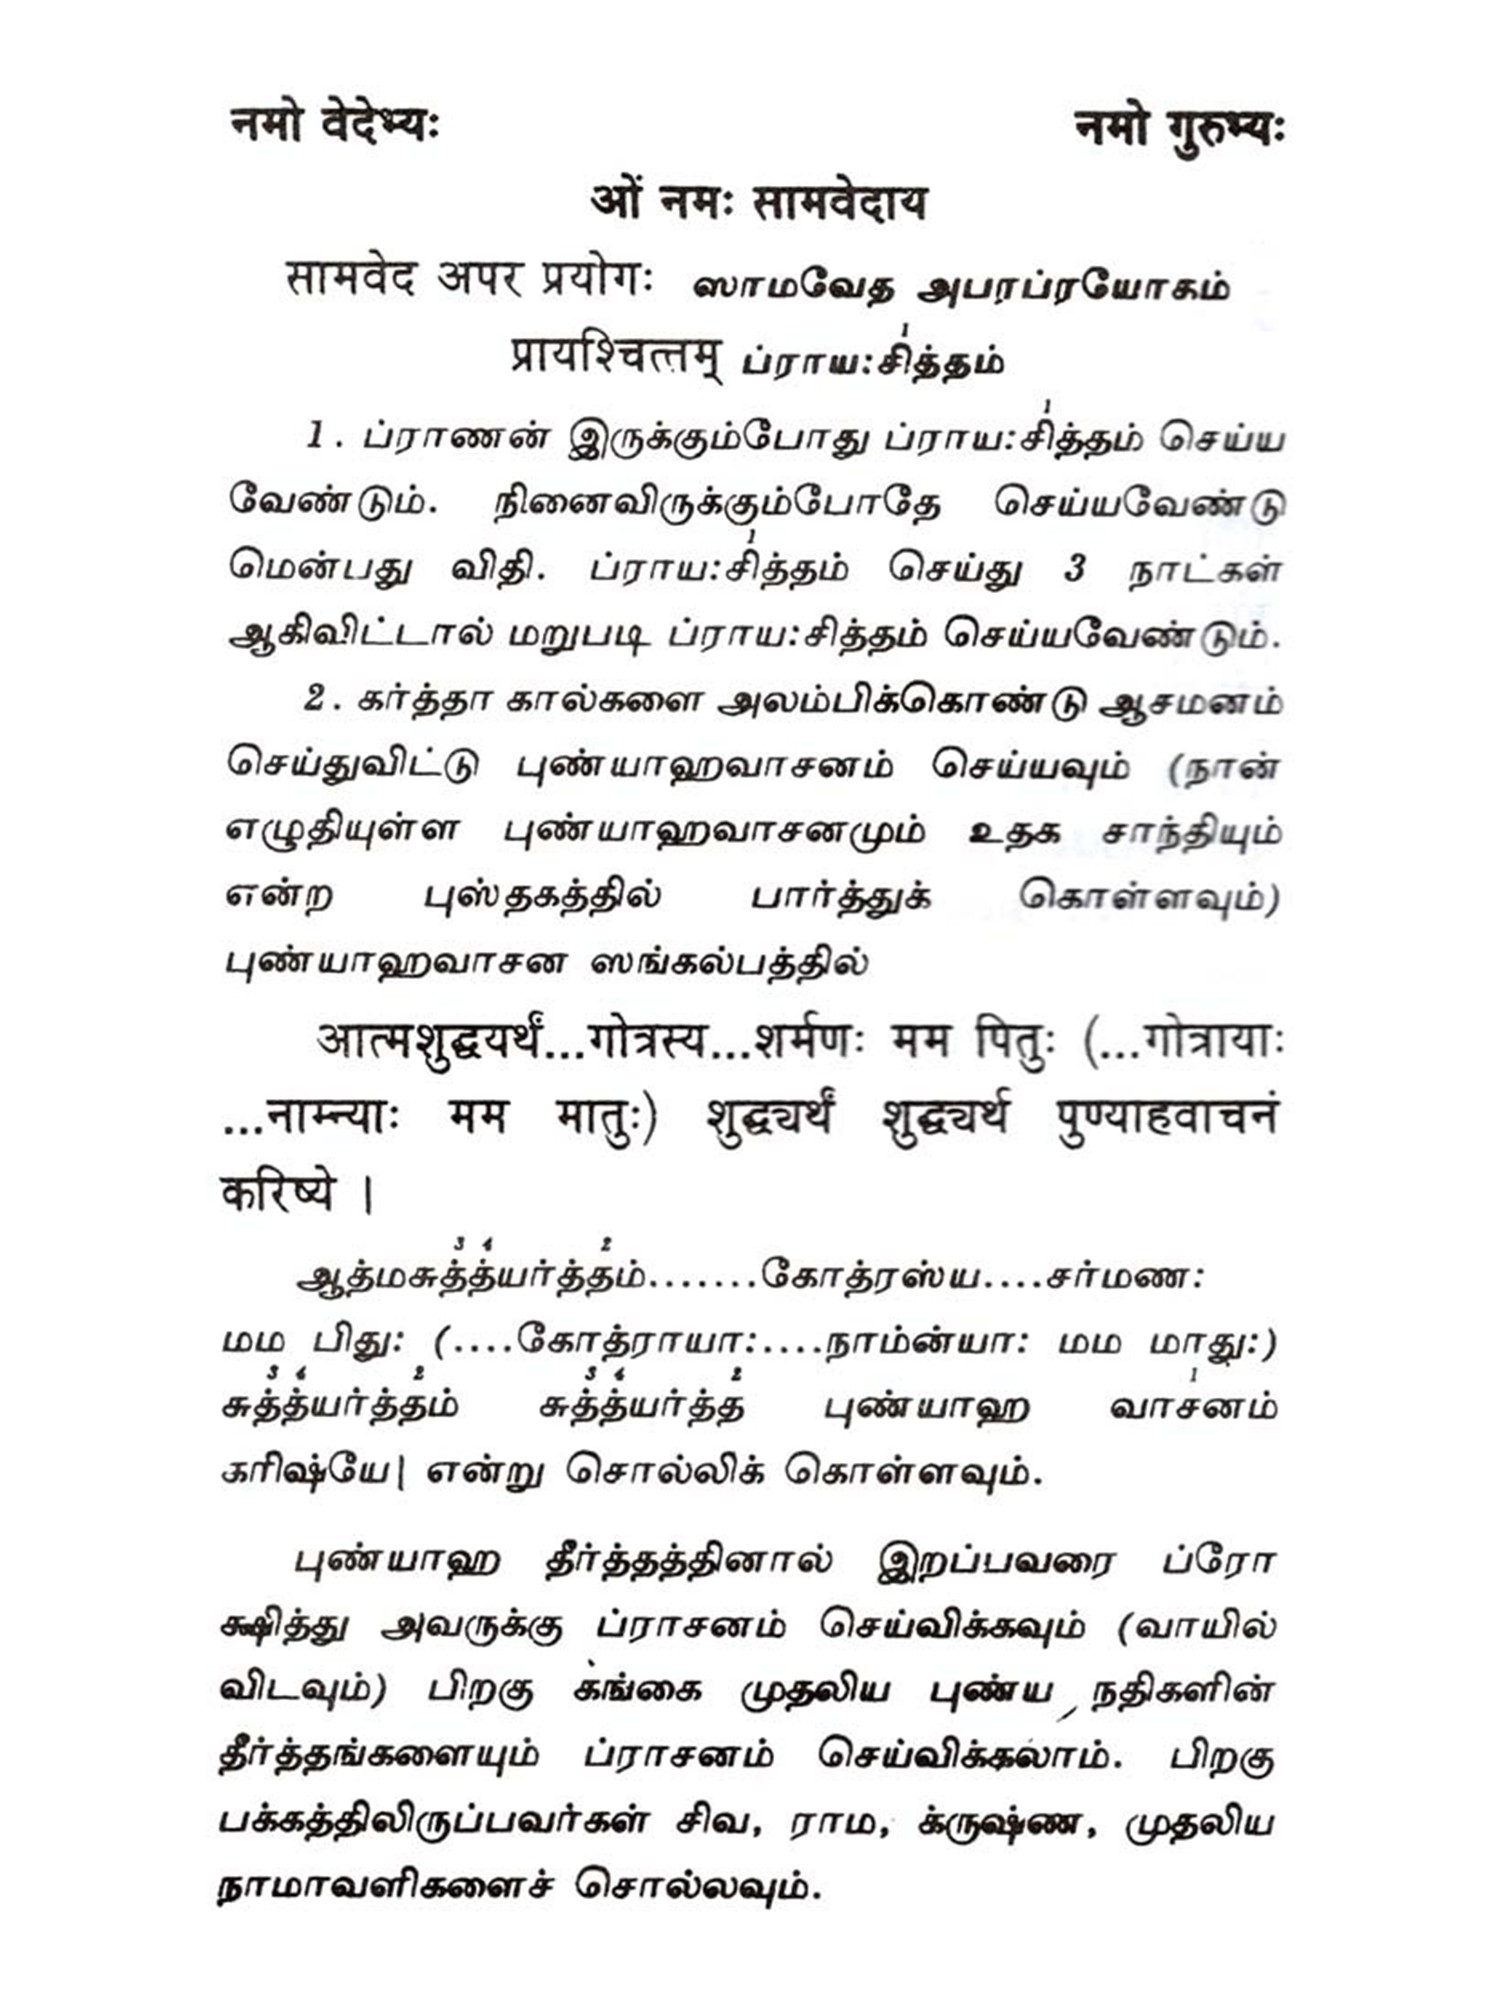 नमो वेदेभ्यः नमो गुरुभ्यः
ओं नमः सामवेदाय
सामवेद अपर प्रयोगः ஸாமவேத அபரப்ரயோகம்
प्रायश्चित्तम् ப்ராய:சி¹த்தம்
1. ப்ராணன் இருக்கும்போது ப்ராய:சி¹த்தம் செய்ய
வேண்டும். நினைவிருக்கும்போதே செய்யவேண்டு
மென்பது விதி. ப்ராய:சி¹த்தம் செய்து 3 நாட்கள்
ஆகிவிட்டால் மறுபடி ப்ராய:சித்தம் செய்யவேண்டும்.
2. கர்த்தா கால்களை அலம்பிக்கொண்டு ஆசமனம்
செய்துவிட்டு புண்யாஹவாசனம் செய்யவும் (நான்
எழுதியுள்ள புண்யாஹவாசனமும் உதக சாந்தியும்
என்ற புஸ்தகத்தில் பார்த்துக் கொள்ளவும்)
புண்யாஹவாசன ஸங்கல்பத்தில்
आत्मशुद्धयर्थं...गोत्रस्य...शर्मणः मम पितुः (...गोत्रायाः
...नाम्न्याः मम मातुः) शुद्ध्यर्थं शुद्ध्यर्थ पुण्याहवाचनं
करिष्ये ।
ஆத்மசுத்³த்⁴யர்த்த²ம்.......கோத்ரஸ்ய....சர்மண:
மம பிது: (....கோத்ராயா:....நாம்ன்யா: மம மாது:)
சுத்³த்⁴யர்த்த²ம் சுத்³த்⁴யர்த்த² புண்யாஹ வாச¹னம்
கரிஷ்யே| என்று சொல்லிக் கொள்ளவும்.
புண்யாஹ தீர்த்தத்தினால் இறப்பவரை ப்ரோ
க்ஷித்து அவருக்கு ப்ராசனம் செய்விக்கவும் (வாயில்
விடவும்) பிறகு கங்கை முதலிய புண்ய நதிகளின்
தீர்த்தங்களையும் ப்ராசனம் செய்விக்கலாம். பிறகு
பக்கத்திலிருப்பவர்கள் சிவ, ராம, க்ருஷ்ண, முதலிய
நாமாவளிகளைச் சொல்லவும்.